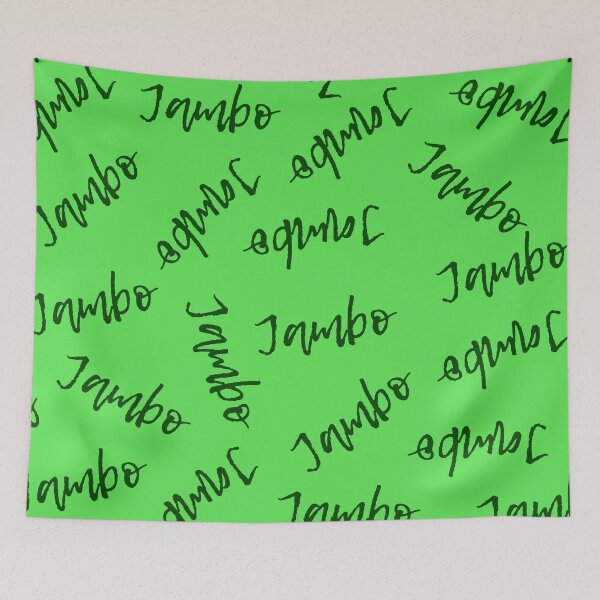 Jambo
Jambo
Jambo
Jambo
Jambo
Jambo
Jambo
Jambo
Jambo
Jambo
Jambo
Jambo
Jambo
Jambo
Jambo
Jambo
Jambo
Jambo
Jambo
Jambo